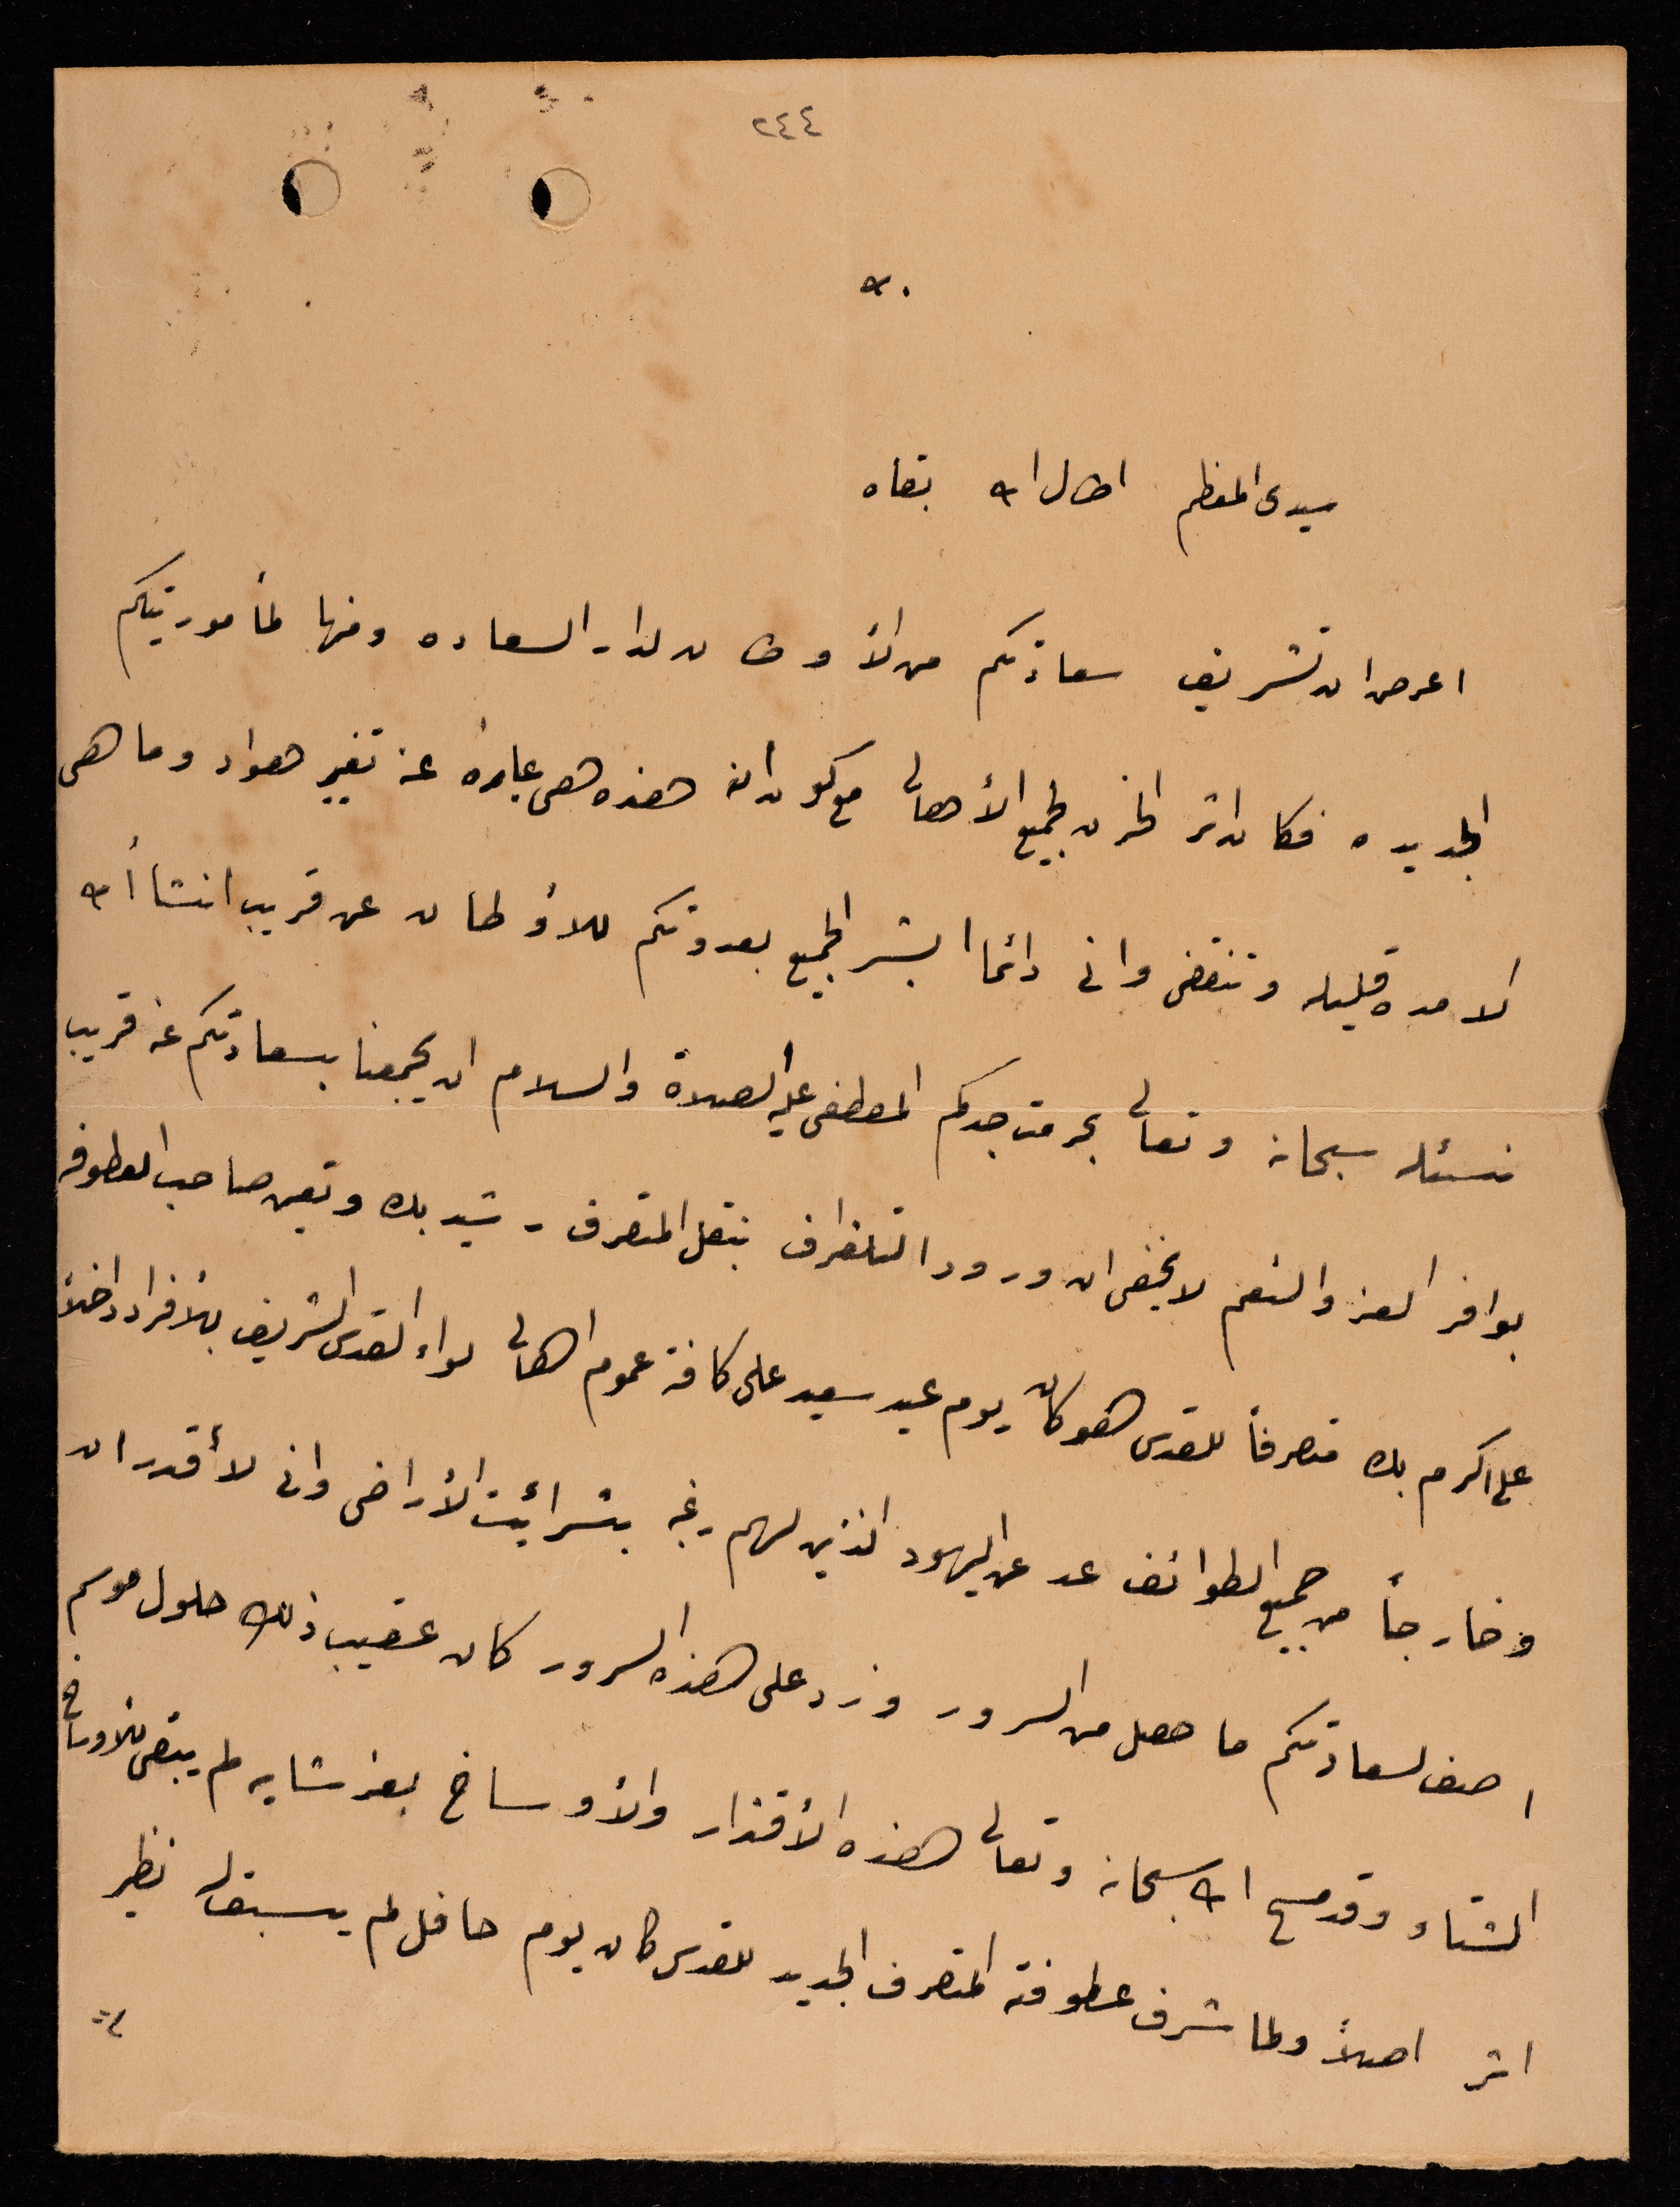 ٢٤٤
سيدى المعظم اطال الله بقاه
اعرض ان تشريف سعادتكم من الأوطان لدار السعاده ومنها لمأموريتكم
الجديده فكان اثر الحزن لجميع الأهالى مع كون انه هذه هى عباره عن تغيير هواء وما هى
الا مده قليله وتنقضى وانى دائما ابشر الجميع بعودتكم للأوطان عن قريب انشاأ الله
نسئله سبحانه وتعالى بحرمة جدكم المصطفى عليه الصلاة والسلام ان يجمعنا بسعادتكم عن قريب
بوافر العز والنعم لا يخفى ان ورود التلغراف بنقل المتصرف رشيد بك وتعين صاحب العطوفه
على اكرم بك متصرفاً للقدس هو كان يوم عيد سعيد على كافة عموم اهالى لواء القدس الشريف بالأفراد داخلاً
وخارجاً من جميع الطوائف عد عن اليهود الذين لهم رغبه بشرائيت الأراضى وانى لا أقدر ان
اصف لسعادتكم ما حصل من السرور وزد على هذه السرور كان عقيب ذلك حلول موسم
الشتاء وقد مسح الله سبحانه وتعالى هذه الأقذار والأوساخ بعز شانه لم يبقى للأوساخ
اثر اصلاً ولما شرف عطوفة المتصرف الجديد للقدس كان يوم حافل لم يسبقله نظير